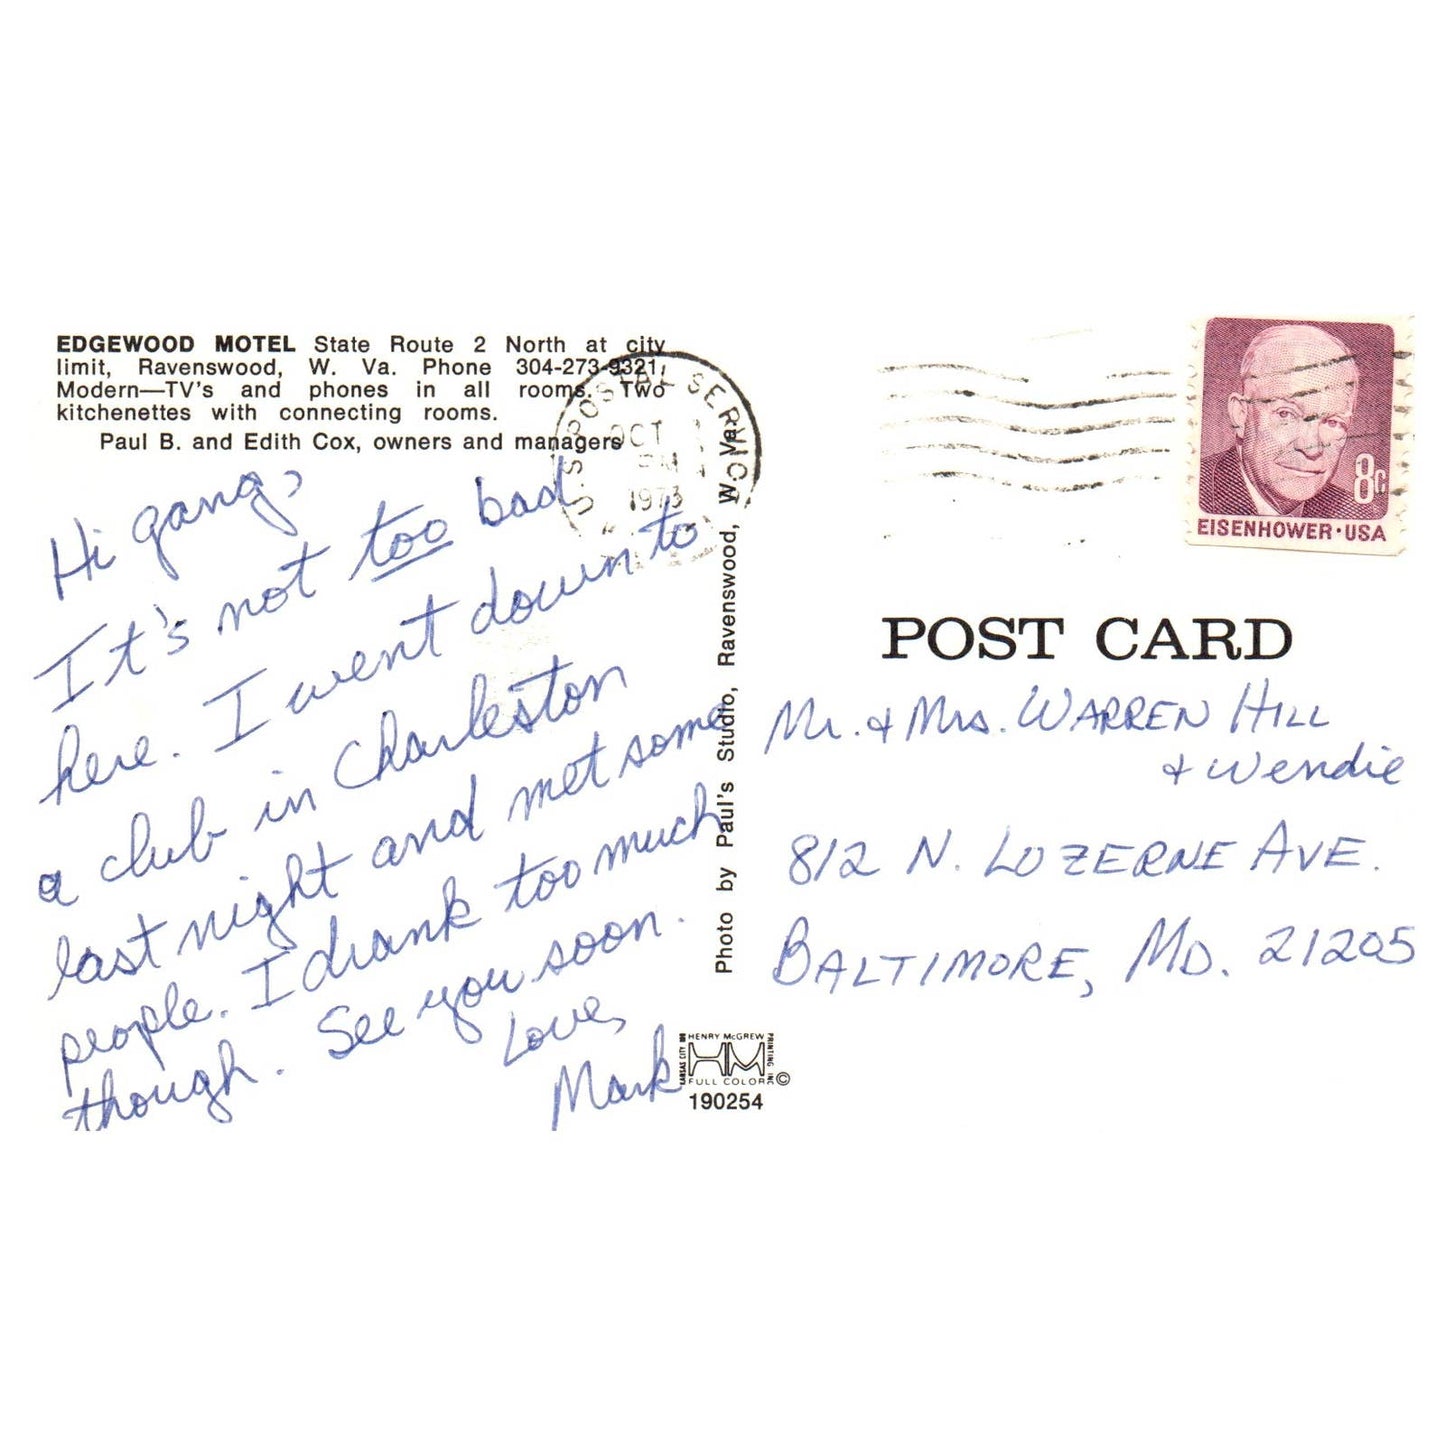 EDGEWOOD MOTEL State Route 2 North at city
limit, Ravenswood, W. Va. Phone 304-273-9321.
Modern—TV's and phones in all rooms. Two
kitchenettes with connecting rooms.
Paul B. and Edith Cox, owners and managers
Hi gang,
It's not too bad
here. I went down to
a club in Charleston
last night and met some
people. I drank too much
though. See you soon.
Love,
Mark
U.S. POSTAL SERVICE
OCT
PM
1973
Photo by Paul's Studio, Ravenswood, W. Va.
KANSAS CITY MO
HENRY McGREW
PRINTING, INC
HM
FULL COLOR ©
190254
8c
EISENHOWER·USA
POST CARD
Mr. & Mrs. WARREN HILL
& Wendie
812 N. LUZERNE AVE.
BALTIMORE, MD. 21205